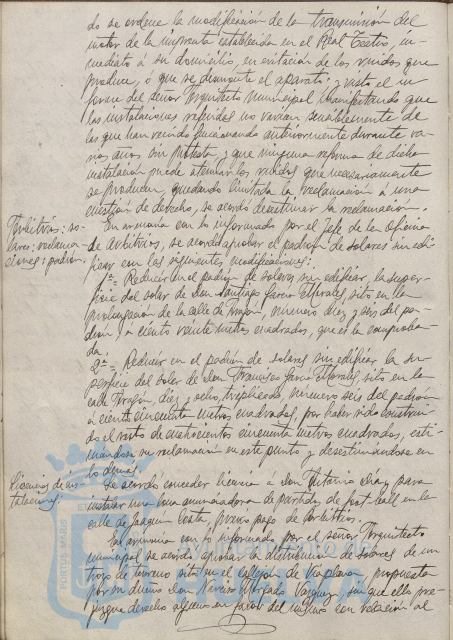 do se ordene la modificación de la transmisión del
motor de la imprenta establecida en el Real Teatro, in-
mediato a su domicilio, en evitación de los ruidos que
produce, o que se desmonte el aparato; y visto el in-
forme del señor Arquitecto municipal manifestando que
las instalaciones referidas no varían sensiblemente de
las que han venido funcionando anteriormente durante va-
rios años sin protesta, y que ninguna reforma de dicha
instalación puede atenuar los ruidos que necesariamente
se producen, quedando limitada la reclamación a una
cuestión de derecho, se acordó desestimar la reclamación.
Arbitrios: so-
lares: reclama-
ciones: padrón.
En armonía con lo informado por el Jefe de la Oficina
de Arbitrios, se acordó aprobar el padrón de solares sin edi-
ficar con las siguientes modificaciones:
1ª = Reducir en el padrón de solares sin edificar, la super-
ficie del solar de Don Santiago García Morales, sito en la
prolongación de la calle de Aragón, número diez y seis del pa-
drón, a ciento veinte metros cuadrados, que es la comproba-
da.
2ª = Reducir en el padrón de solares sin edificar la su-
perficie del solar de Don Francisco García Morales, sito en la
calle Aragón, diez y ocho, triplicado, número seis del padrón
a ciento cincuenta metros cuadrados, por haber sido construi-
do el resto de cuatrocientos cincuenta metros cuadrados, esti-
mándose su reclamación en este punto y desestimándose en
lo demás.
Licencias de ins-
talaciones:
Se acordó conceder licencia a Don Antonio Díaz para
instalar una anunciadora de partidos de foot-ball en la
calle de Joaquín Costa, previo pago de arbitrios.
En armonía con lo informado por el señor Arquitecto
municipal se acordó aprobar la distribución de solares de un
trozo de terreno sito en el callejón de Viaplana, propuesta
por su dueño Don Narciso Morgado Vázquez, sin que ello pre-
juzgue derecho alguno en favor del mismo con relación al